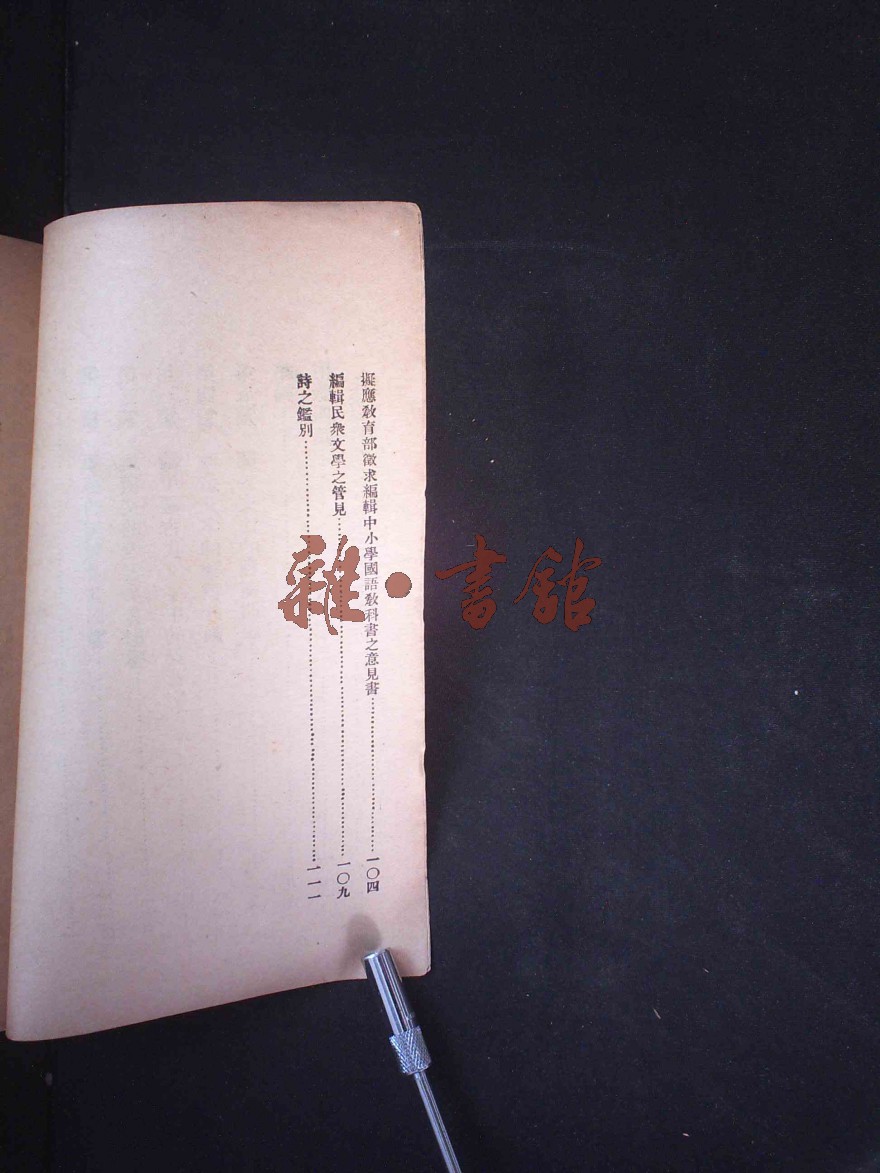 擬應敎育部徵求編輯中小學國語敎科書之意見書……一〇四
編輯民衆文學之管見……一〇九
詩之鑑別……一一一
雜·書館